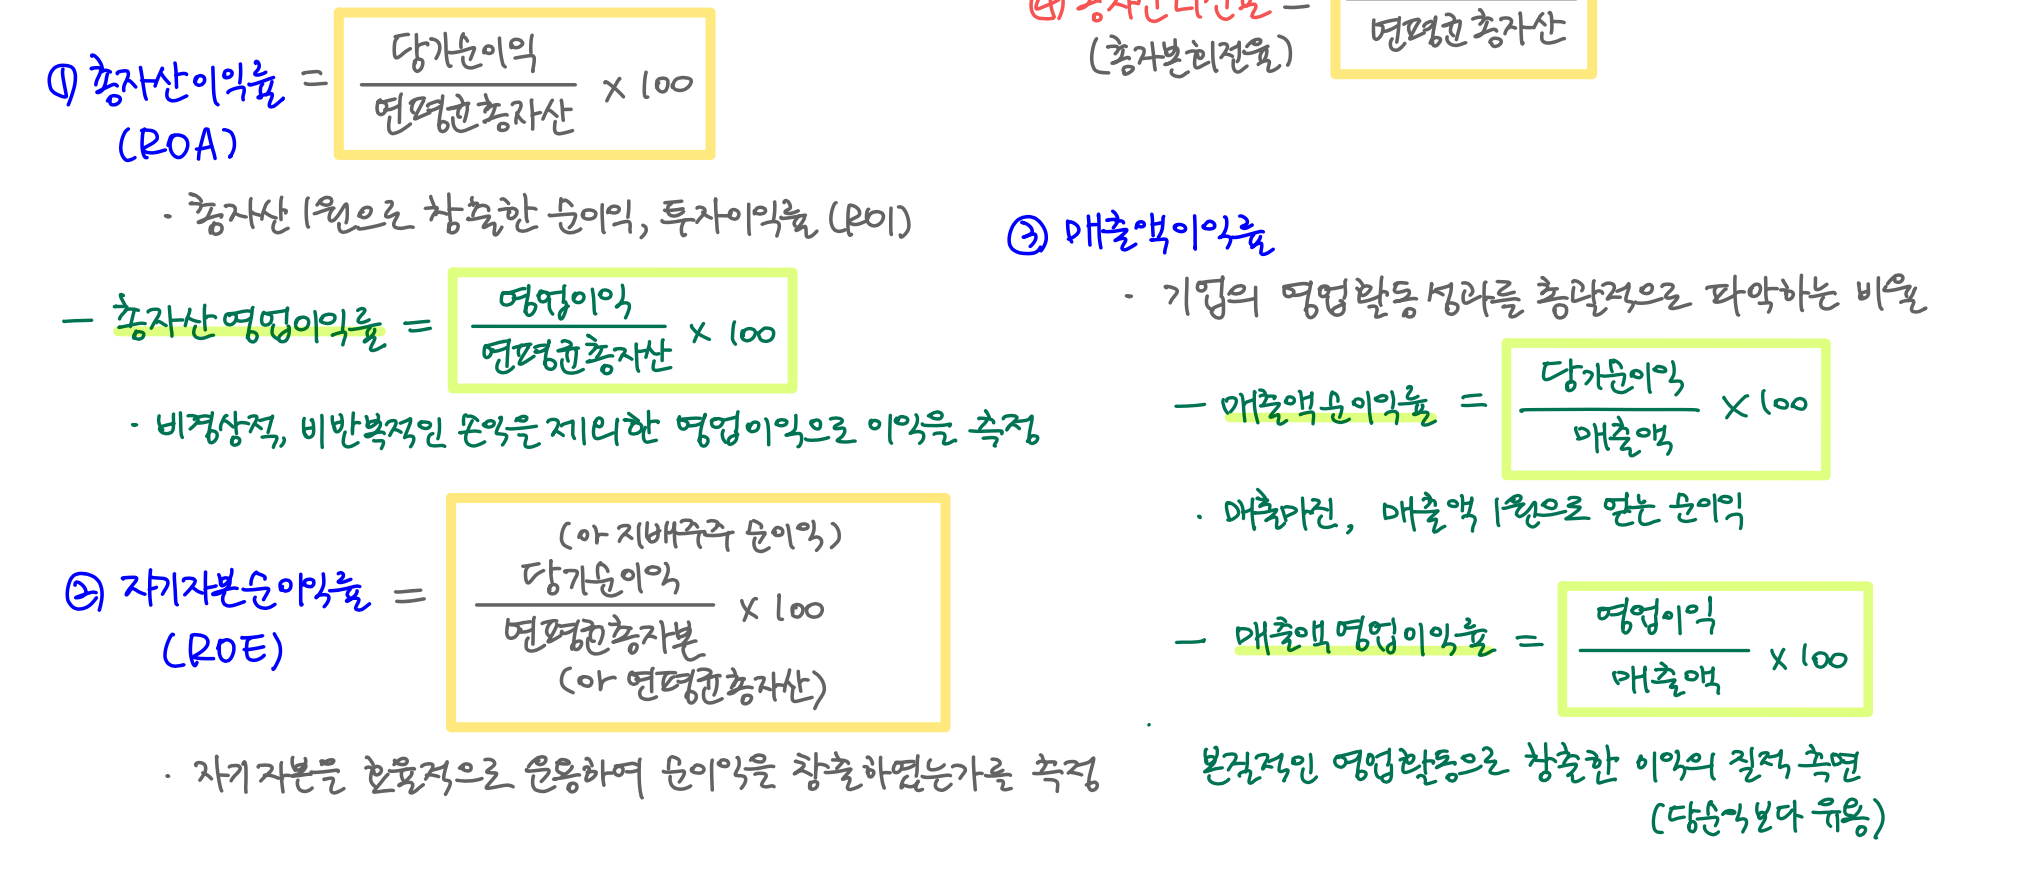 ① 총자산이익률 = 당기순이익 / 연평균총자산 × 100
(ROA)
· 총자산 1원으로 창출한 순이익, 투자이익률 (ROI)
- 총자산영업이익률 = 영업이익 / 연평균총자산 × 100
· 비경상적, 비반복적인 손익을 제외한 영업이익으로 이익을 측정
(아 지배주주 순이익)
② 자기자본순이익률 = 당기순이익 / 연평균총자본 × 100
(ROE)
(아 연평균총자산)
· 자기자본을 효율적으로 운용하여 순이익을 창출하였는가를 측정
④ 총자산회전율 =
연평균총자산
(총자본회전율)
③ 매출액이익률
· 기업의 영업활동성과를 총괄적으로 파악하는 비율
- 매출액순이익률 = 당기순이익 / 매출액 × 100
· 매출마진, 매출액 1원으로 얻는 순이익
- 매출액영업이익률 = 영업이익 / 매출액 × 100
· 본질적인 영업활동으로 창출한 이익의 질적 측면
(당순익보다 유용)